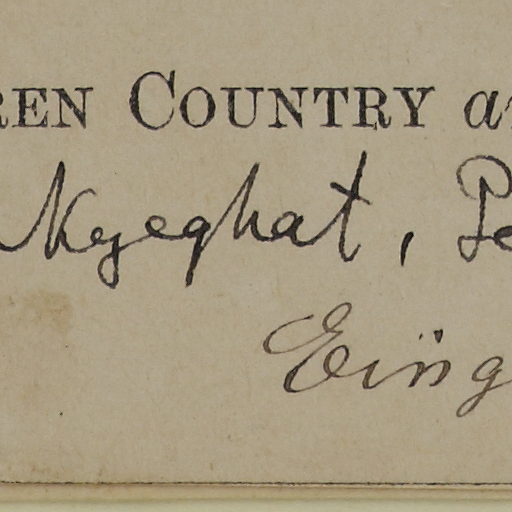 REN COUNTRY at
Nkyeghat, Pe
Eing